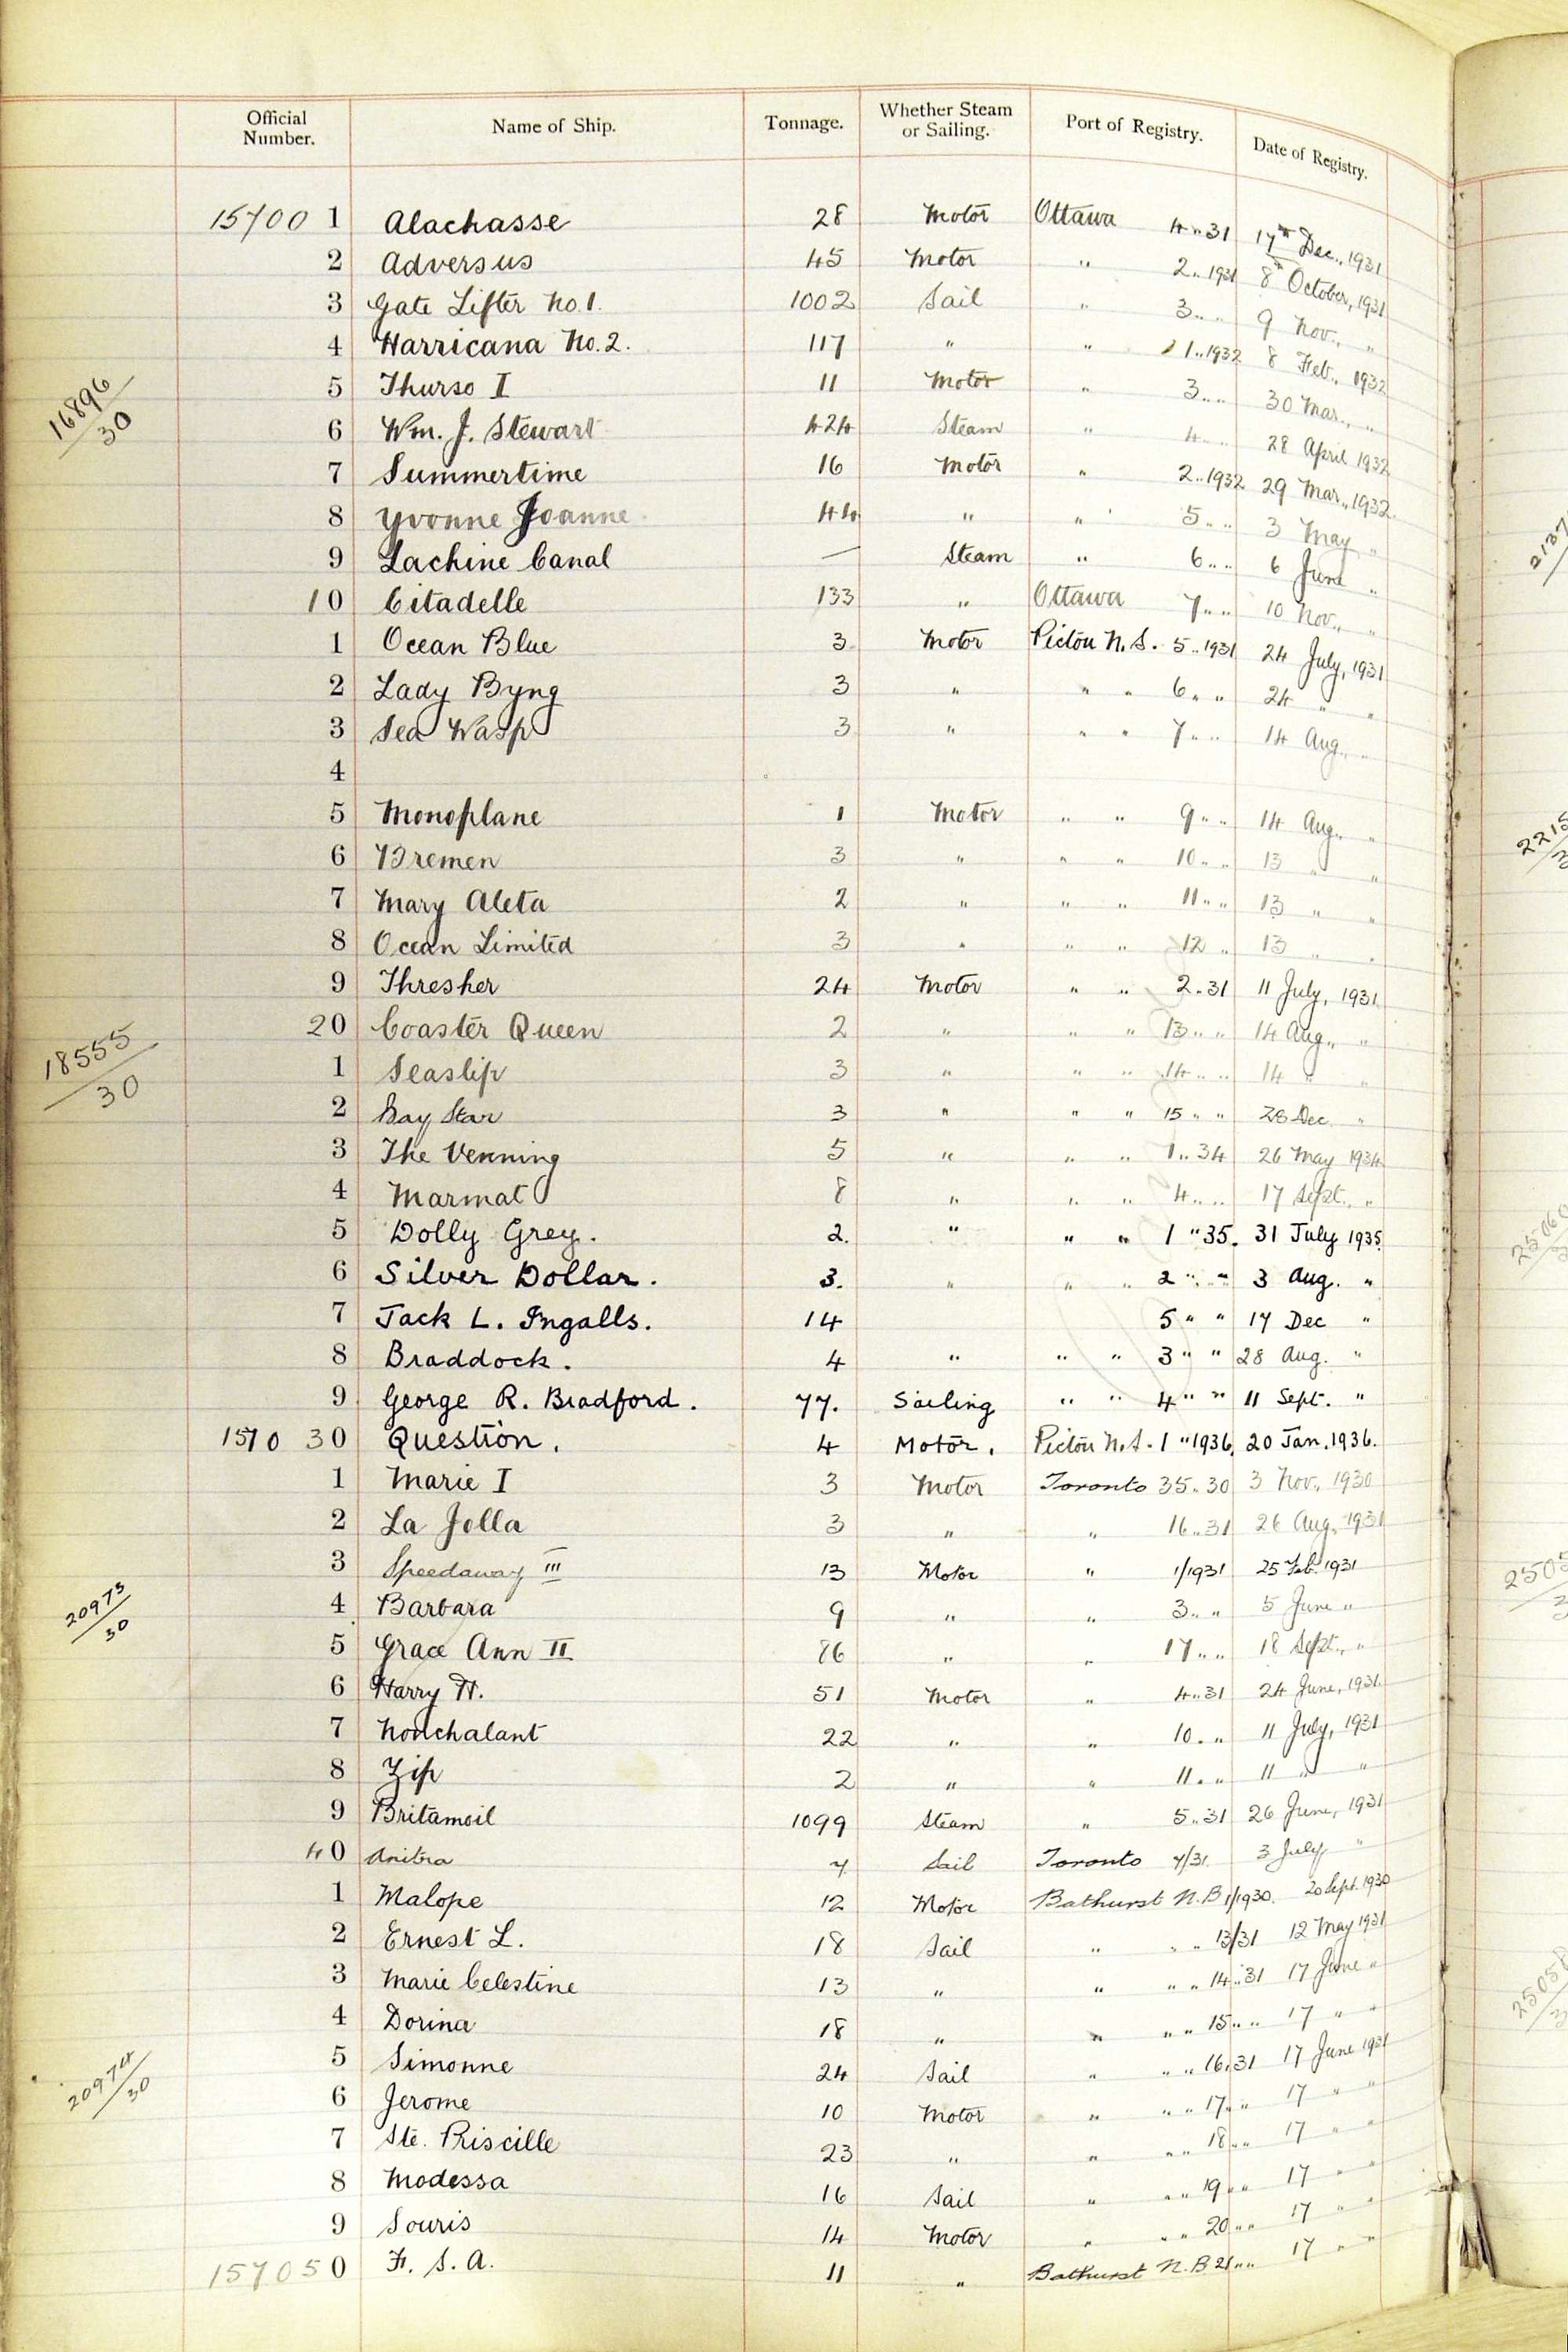 Official Number. Name of Ship. Tonnage. Whether Steam or Sailing. Port of Registry. Date of Registry.
15700 1 Alachasse 28 Motor Ottawa 4 " 31 17th Dec., 1931
2 Adversus 45 Motor " 2 " 1931 8th October, 1931
3 Gate Lifter No.1. 1002 Sail " 3 " " 9 Nov., "
4 Harricana No. 2. 117 " " 1 " 1932 8 Feb., 1932
16896/30
5 Thurso I 11 Motor " 3 " " 30 Mar., "
6 Wm. J. Stewart 424 Steam " 4 " " 28 April 1932
7 Summertime 16 Motor " 2 " 1932 29 Mar., 1932
8 Yvonne Joanne 44 " " 5 " " 3 May "
9 Lachine Canal — Steam " 6 " " 6 June "
10 Citadelle 133 " Ottawa 7 " " 10 Nov., "
1 Ocean Blue 3 Motor Pictou N.S. 5 " 1931 24 July, 1931
2 Lady Byng 3 " " " 6 " " 24 " "
3 Sea Wasp 3 " " " 7 " " 14 Aug. "
4
5 Monoplane 1 Motor " " 9 " " 14 Aug. "
6 Bremen 3 " " " 10 " " 13 " "
7 Mary Aleta 2 " " " 11 " " 13 " "
8 Ocean Limited 3 " " " 12 " 13 " "
9 Thresher 24 Motor " " 2 " 31 11 July, 1931
20 Coaster Queen 2 " " " 13 " " 14 Aug., "
18555/30
1 Seaslip 3 " " " 14 " " 14 " "
2 Bay Star 3 " " " 15 " " 28 Dec. "
3 The Venning 5 " " " 1 " 34 26 May 1934
4 Marmat 8 " " " 4 " " 17 Sept., "
5 Dolly Grey. 2. " " " 1 " 35. 31 July 1935.
6 Silver Dollar. 3. " " " 2 " " 3 Aug. "
7 Jack L. Ingalls. 14 5 " " 17 Dec "
8 Braddock. 4 " " " 3 " " 28 Aug. "
9 George R. Bradford. 77. Sailing " " 4 " " 11 Sept. "
1570 30 Question. 4 Motor. Pictou N.S. 1 " 1936. 20 Jan. 1936.
1 Marie I 3 Motor Toronto 35 " 30 3 Nov., 1930
2 La Jolla 3 " " 16 " 31 26 Aug., 1931
3 Speedaway III 13 Motor " 1/1931 25 Feb. 1931
20973/30
4 Barbara 9 " " 3 " " 5 June "
5 Grace Ann II 86 " " 17 " " 18 Sept., "
6 Harry H. 51 Motor " 4 " 31 24 June, 1931.
7 Nonchalant 22 " " 10 " " 11 July, 1931
8 Zip 2 " " 11 " " 11 " "
9 Britamoil 1099 Steam " 5 " 31 26 June, 1931
40 Anitra 7 Sail Toronto 7/31. 3 July "
1 Malope 12 Motor Bathurst N.B 1/1930. 20 Sept. 1930
2 Ernest L. 18 Sail " " " 13/31 12 May 1931
3 Marie Celestine 13 " " " " 14 " 31 17 June "
4 Dorina 18 " " " " 15 " " 17 " "
20974/30
5 Simonne 24 Sail " " " 16 " 31 17 June 1931
6 Jerome 10 Motor " " " 17 " " 17 " "
7 Ste. Priscille 23 " " " " 18 " " 17 " "
8 Modessa 16 Sail " " " 19 " " 17 " "
9 Souris 14 Motor " " " 20 " " 17 " "
157050 F. S. A. 11 " Bathurst N.B 21 " " 17 " "